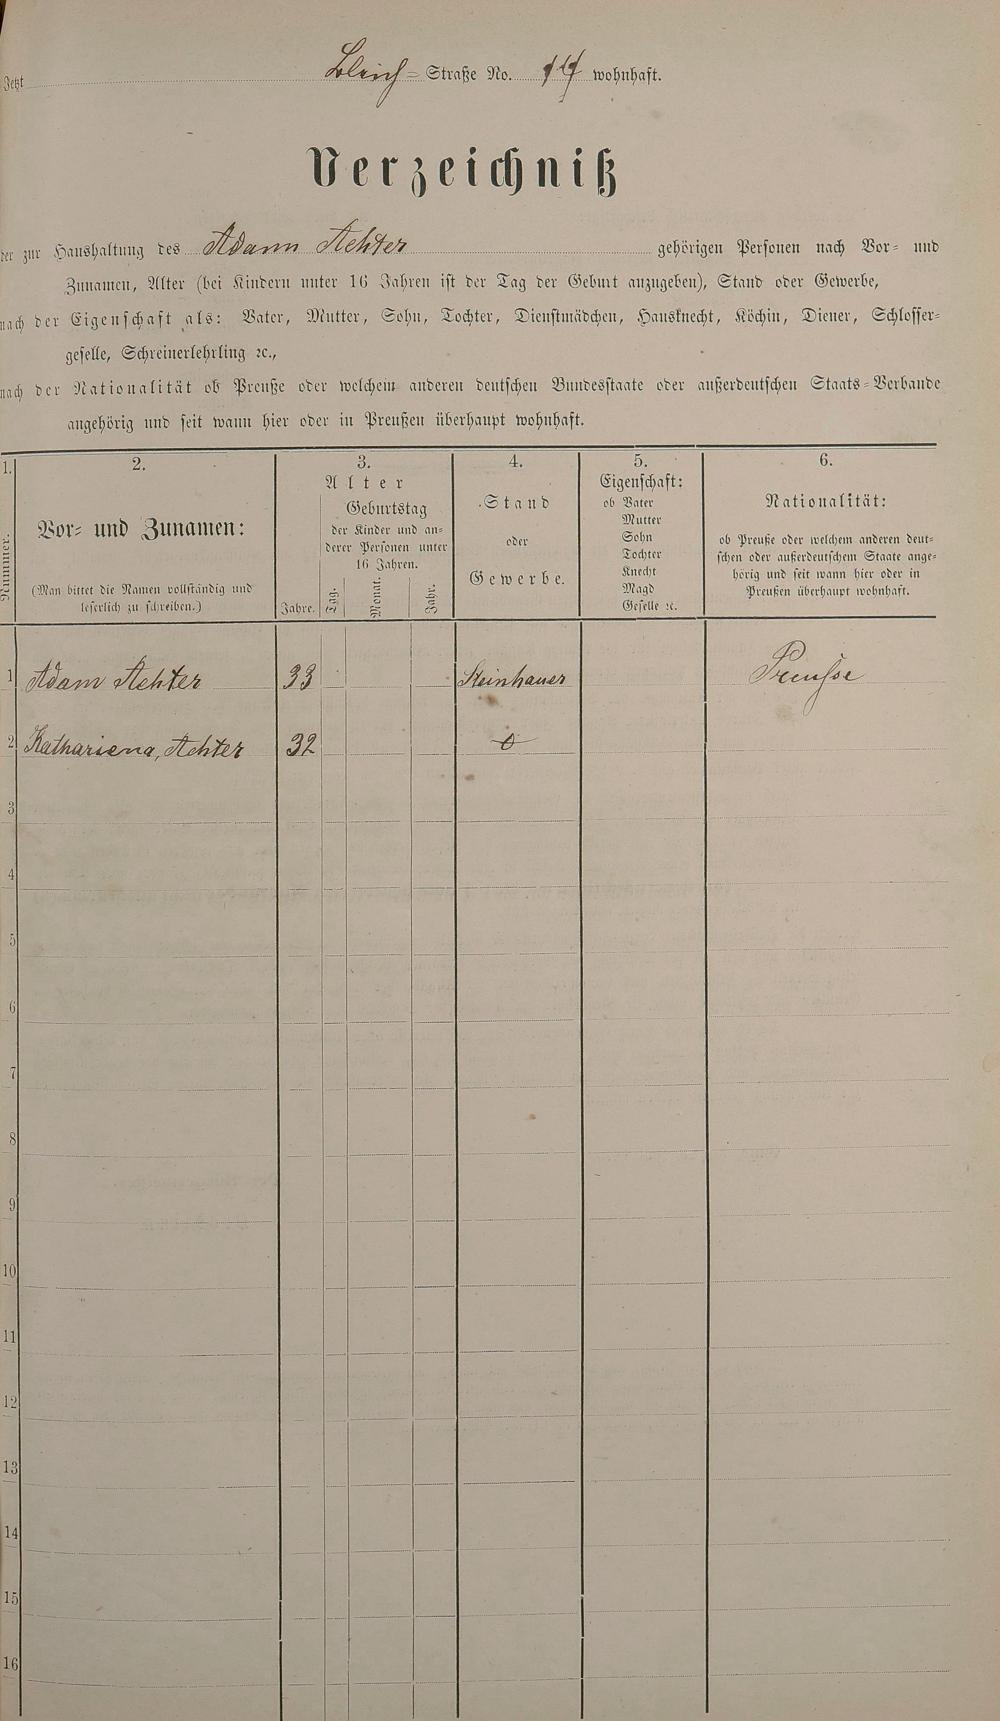 Jetzt Bleich= Straße No. 14 wohnhaft.
Verzeichniß
der zur Haushaltung des Adam Achter gehörigen Personen nach Vor= und
Zunamen, Alter (bei Kindern unter 16 Jahren ist der Tag der Geburt anzugeben), Stand oder Gewerbe,
nach der Eigenschaft als: Vater, Mutter, Sohn, Tochter, Dienstmädchen, Hausknecht, Köchin, Diener, Schlosser=
geselle, Schreinerlehrling ꝛc.,
nach der Nationalität ob Preuße oder welchem anderen deutschen Bundesstaate oder außerdeutschen Staats=Verbande
angehörig und seit wann hier oder in Preußen überhaupt wohnhaft.
1.
Nummer.
2.
Vor= und Zunamen:
(Man bittet die Namen vollständig und
leserlich zu schreiben.)
3.
Alter
Jahre.
Geburtstag
der Kinder und an=
derer Personen unter
16 Jahren.
Tag.
Monat.
Jahr.
4.
Stand
oder
Gewerbe.
5.
Eigenschaft:
ob Vater
Mutter
Sohn
Tochter
Knecht
Magd
Geselle ꝛc.
6.
Nationalität:
ob Preuße oder welchem anderen deut=
schen oder außerdeutschem Staate ange=
hörig und seit wann hier oder in
Preußen überhaupt wohnhaft.
1 Adam Achter 33 Steinhauer Preuſse
2 Kathariena, Achter 32 0
3
4
5
6
7
8
9
10
11
12
13
14
15
16